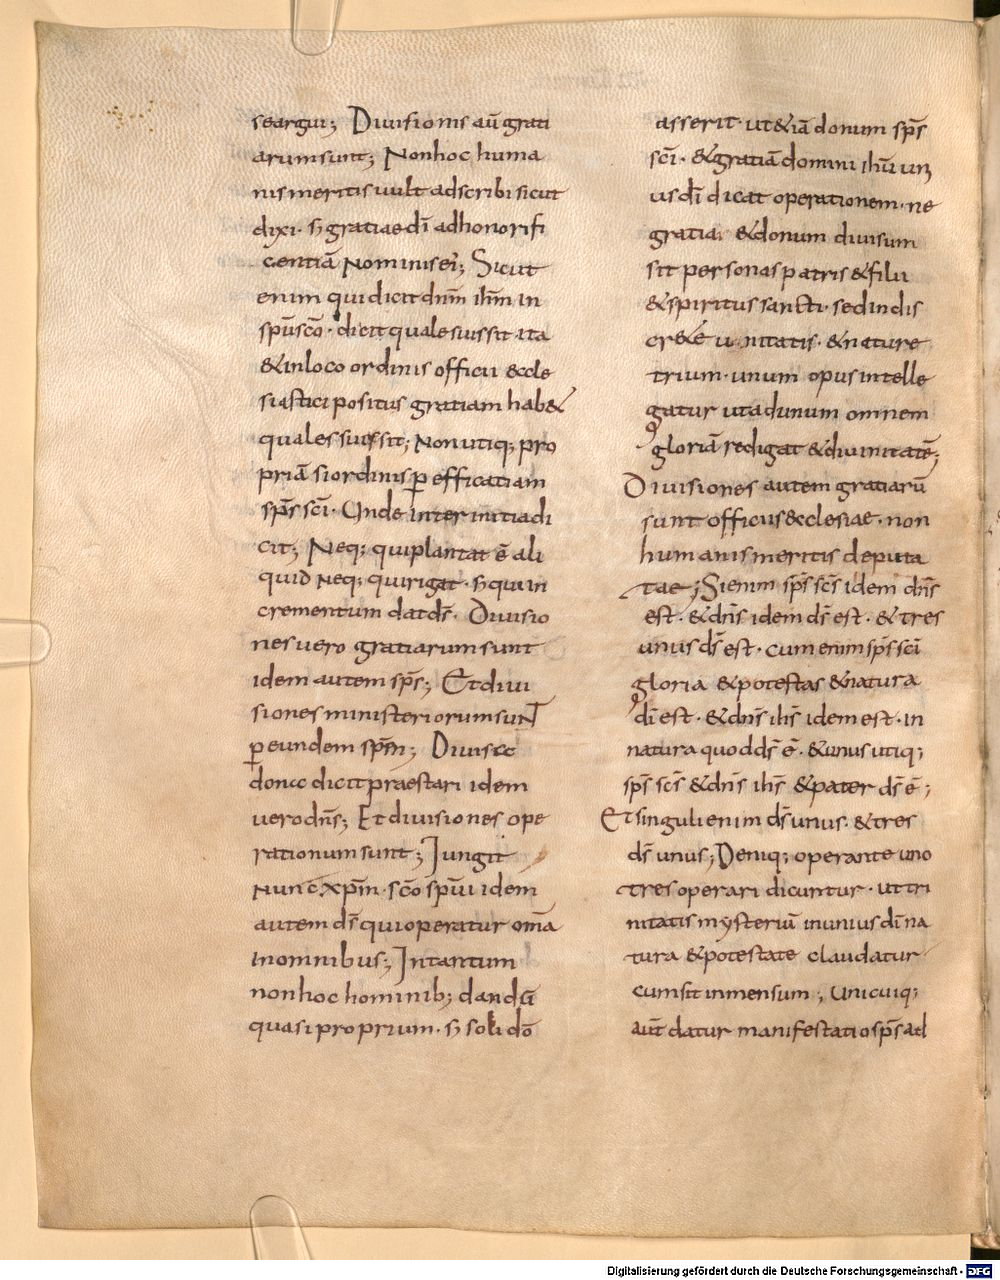 seargui; Diuisionis aū grati
arum sunt; Non hoc huma
nis meritis uult adscribi sicut
dixi· sꝫ gratiae dī ad honorifi
centiā nominis ei'; Sicut
enim qui dicit dnm̄ ihm̄ in
spū scō· dicit quale suis sit ita
& in loco ordinis officii & ecle
siastici positus gratiam hab&
quales suis sit; Non utiq; pro
priā si ordinis ꝑ efficatiam
sps̄ scī· Unde inter initia di
cit; Neq; qui plantat ē ali
quid neq; qui rigat· sꝫ qui in
crementum dat ds̄· Diuisio
nes uero gratiarum sunt
idem autem sps̄; Et diui
siones ministeriorum sunt
ꝑ eundem spm̄; Diuise
donec dicit praestari idem
uero dns̄; Et diuisiones ope
rationum sunt; Jungit
nunc xpm̄· scō spū idem
autem ds̄ qui operatur omā
in omnibus; In tantum
non hoc hominib; dandū
quasi proprium· sꝫ soli dō
asserit· ut & iā donum sps̄
scī· & gratiā domini ihū un
us dī dicat operationem· ne
gratia & donum diuisum
sit personas patris & filii
& spiritus sancti· sed indis
cr&e unitatis· & nature
trium· unum opus intelle
gatur ut ad unum omnem
gloriā redigat & diuinitatē;
Diuisiones autem gratiarū
sunt officiis & eclesiae· non
humanis meritis deputa
tae; Si enim sps̄ scs̄ idem dns̄
est· & dns̄ idem ds̄ est· & tres
unus ds̄ est· cum enim sps̄ scī
gloria & potestas & natura
dī est· & dns̄ ihs̄ idem est· in
natura quod ds̄ ē· & unus utiq;
sps̄ scs̄ & dns̄ ihs̄ & pater ds̄ ē;
Et singuli enim ds̄ unus· & tres
ds̄ unus; Deniq; operante uno
tres operari dicuntur· ut tri
nitatis mysteriū in unius dī na
tura & potestate claudatur
cum sit inmensum; Unicuiq;
aut̄ datur manifestatio sps̄ ad
Digitalisierung gefördert durch die Deutsche Forschungsgemeinschaft - DFG